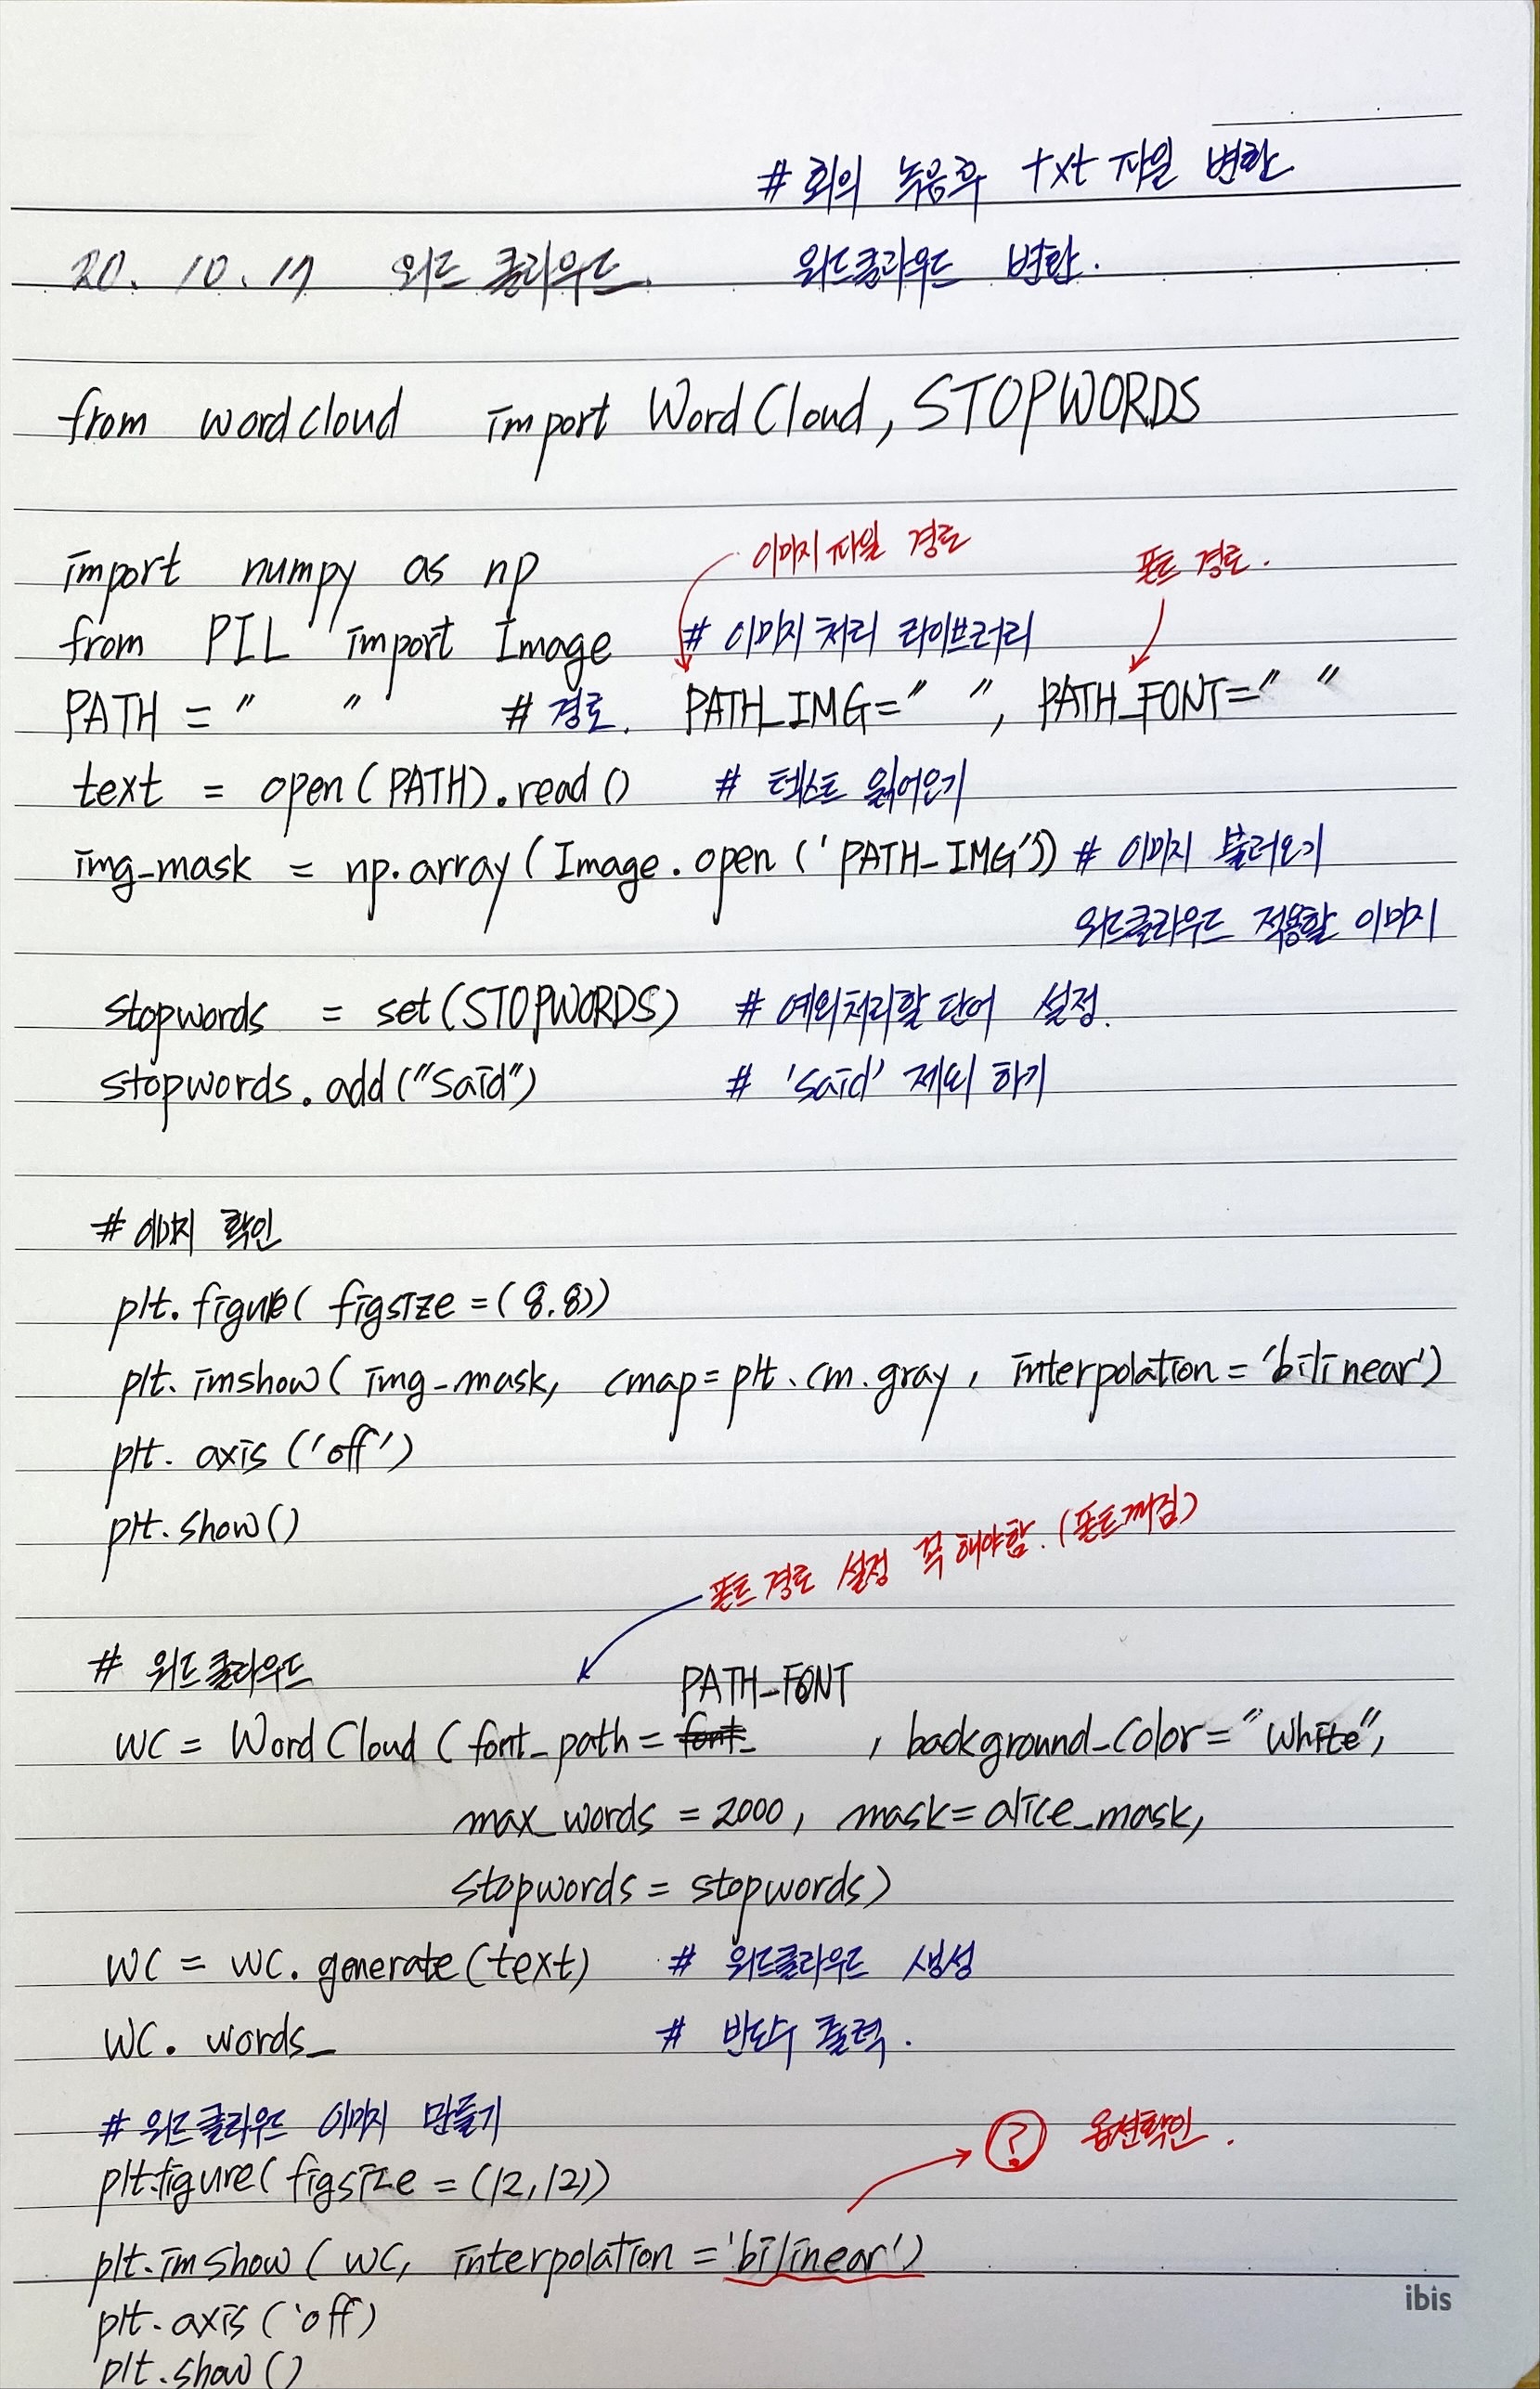 # 회의 녹음후 txt 파일 변환
20. 10. 17 워드 클라우드. 워드클라우드 변환.
from wordcloud import WordCloud, STOPWORDS
이미지파일 경로 폰트 경로.
import numpy as np
from PIL import Image # 이미지 처리 라이브러리
PATH = " " # 경로. PATH_IMG=" ", PATH_FONT=" "
text = open(PATH).read() # 텍스트 읽어오기
img_mask = np.array(Image.open('PATH_IMG')) # 이미지 불러오기
워드클라우드 적용할 이미지
stopwords = set(STOPWORDS) # 예외처리할 단어 설정.
stopwords.add("said") # 'said' 제외 하기
# 이미지 확인
plt.figure( figsize =(8.8))
plt.imshow( img_mask, cmap=plt.cm.gray, interpolation='bilinear')
plt.axis('off')
plt.show()
폰트 경로 설정 꼭 해야함. (폰트깨짐)
# 워드클라우드
PATH_FONT
wc = WordCloud(font_path= font_ , background_color="white",
max_words = 2000, mask=alice_mask,
stopwords = stopwords)
wc = wc.generate(text) # 워드클라우드 생성
wc.words_ # 반도수 출력.
# 워드클라우드 이미지 만들기
? 옵션확인.
plt.figure( figsize = (12,12))
plt.imshow( wc, interpolation ='bilinear')
plt.axis('off)
plt.show()
ibis